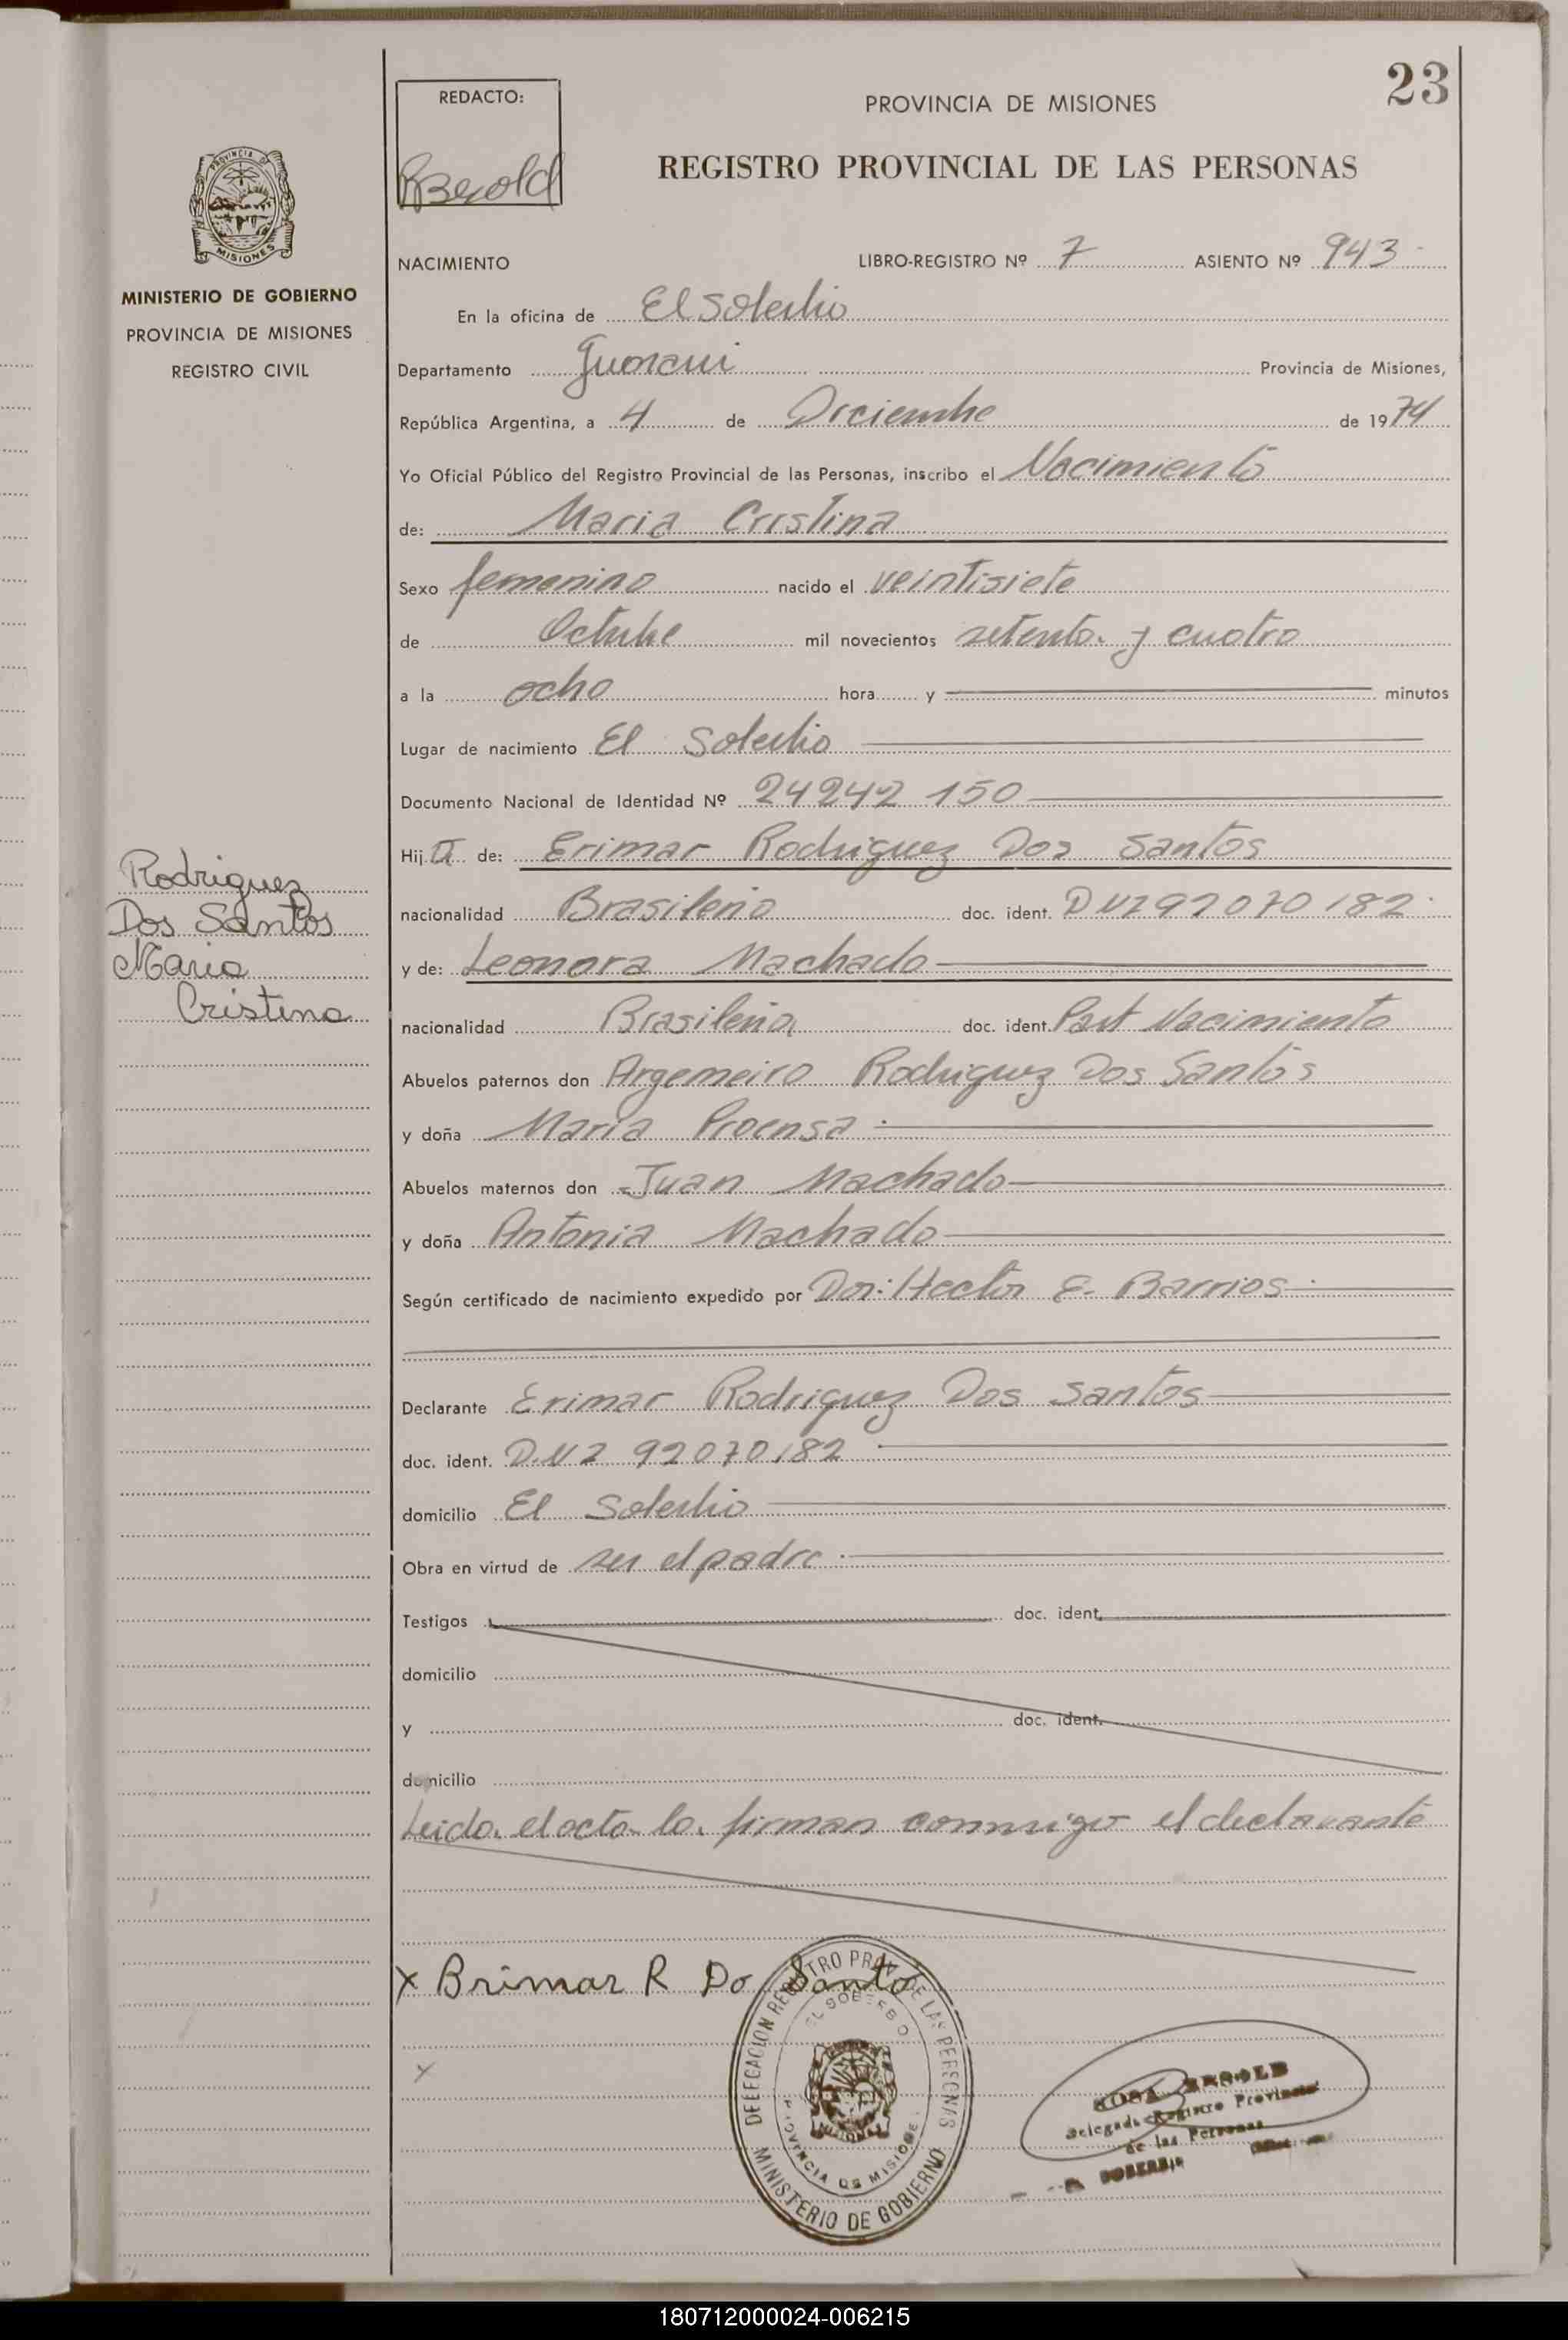 23
REDACTO:
PROVINCIA DE MISIONES
REGISTRO PROVINCIAL DE LAS PERSONAS
PROVINCIA DE
MISIONES
MINISTERIO DE GOBIERNO
PROVINCIA DE MISIONES
REGISTRO CIVIL
NACIMIENTO LIBRO-REGISTRO Nº 7 ASIENTO Nº 943
En la oficina de El Soberbio
Departamento Guarani Provincia de Misiones,
República Argentina, a 4 de Diciembre de 1974
Yo Oficial Público del Registro Provincial de las Personas, inscribo el Nacimiento
de: Maria Cristina
Sexo femenino nacido el veintisiete
de Octubre mil novecientos setenta y cuatro
a la ocho hora y minutos
Lugar de nacimiento El Soberbio
Documento Nacional de Identidad Nº 24242 150
Hija de: Erimar Rodriguez Dos Santos
Rodriguez
Dos Santos
Maria
Cristina
nacionalidad Brasileño doc. ident. DNI 92070182
y de: Leonora Machado
nacionalidad Brasileña doc. ident. Part Nacimiento
Abuelos paternos don Argemeiro Rodriguez Dos Santos
y doña Maria Proensa
Abuelos maternos don Juan Machado
y doña Antonia Machado
Según certificado de nacimiento expedido por Dor: Hector E. Barrios
Declarante Erimar Rodriguez Dos Santos
doc. ident. D.N I 92070182
domicilio El Soberbio
Obra en virtud de ser el padre
Testigos doc. ident.
domicilio
y doc. ident.
domicilio
Leida el acta la firman conmigo el declarante
x Brimar R Do Santo
x
DELEGACION REGISTRO PROV. DE LAS PERSONAS
EL SOBERBIO
PROVINCIA DE MISIONES
MINISTERIO DE GOBIERNO
ROSA BEROLD
Delegada Registro Provincial
de las Personas
SOBERBIO
180712000024-006215